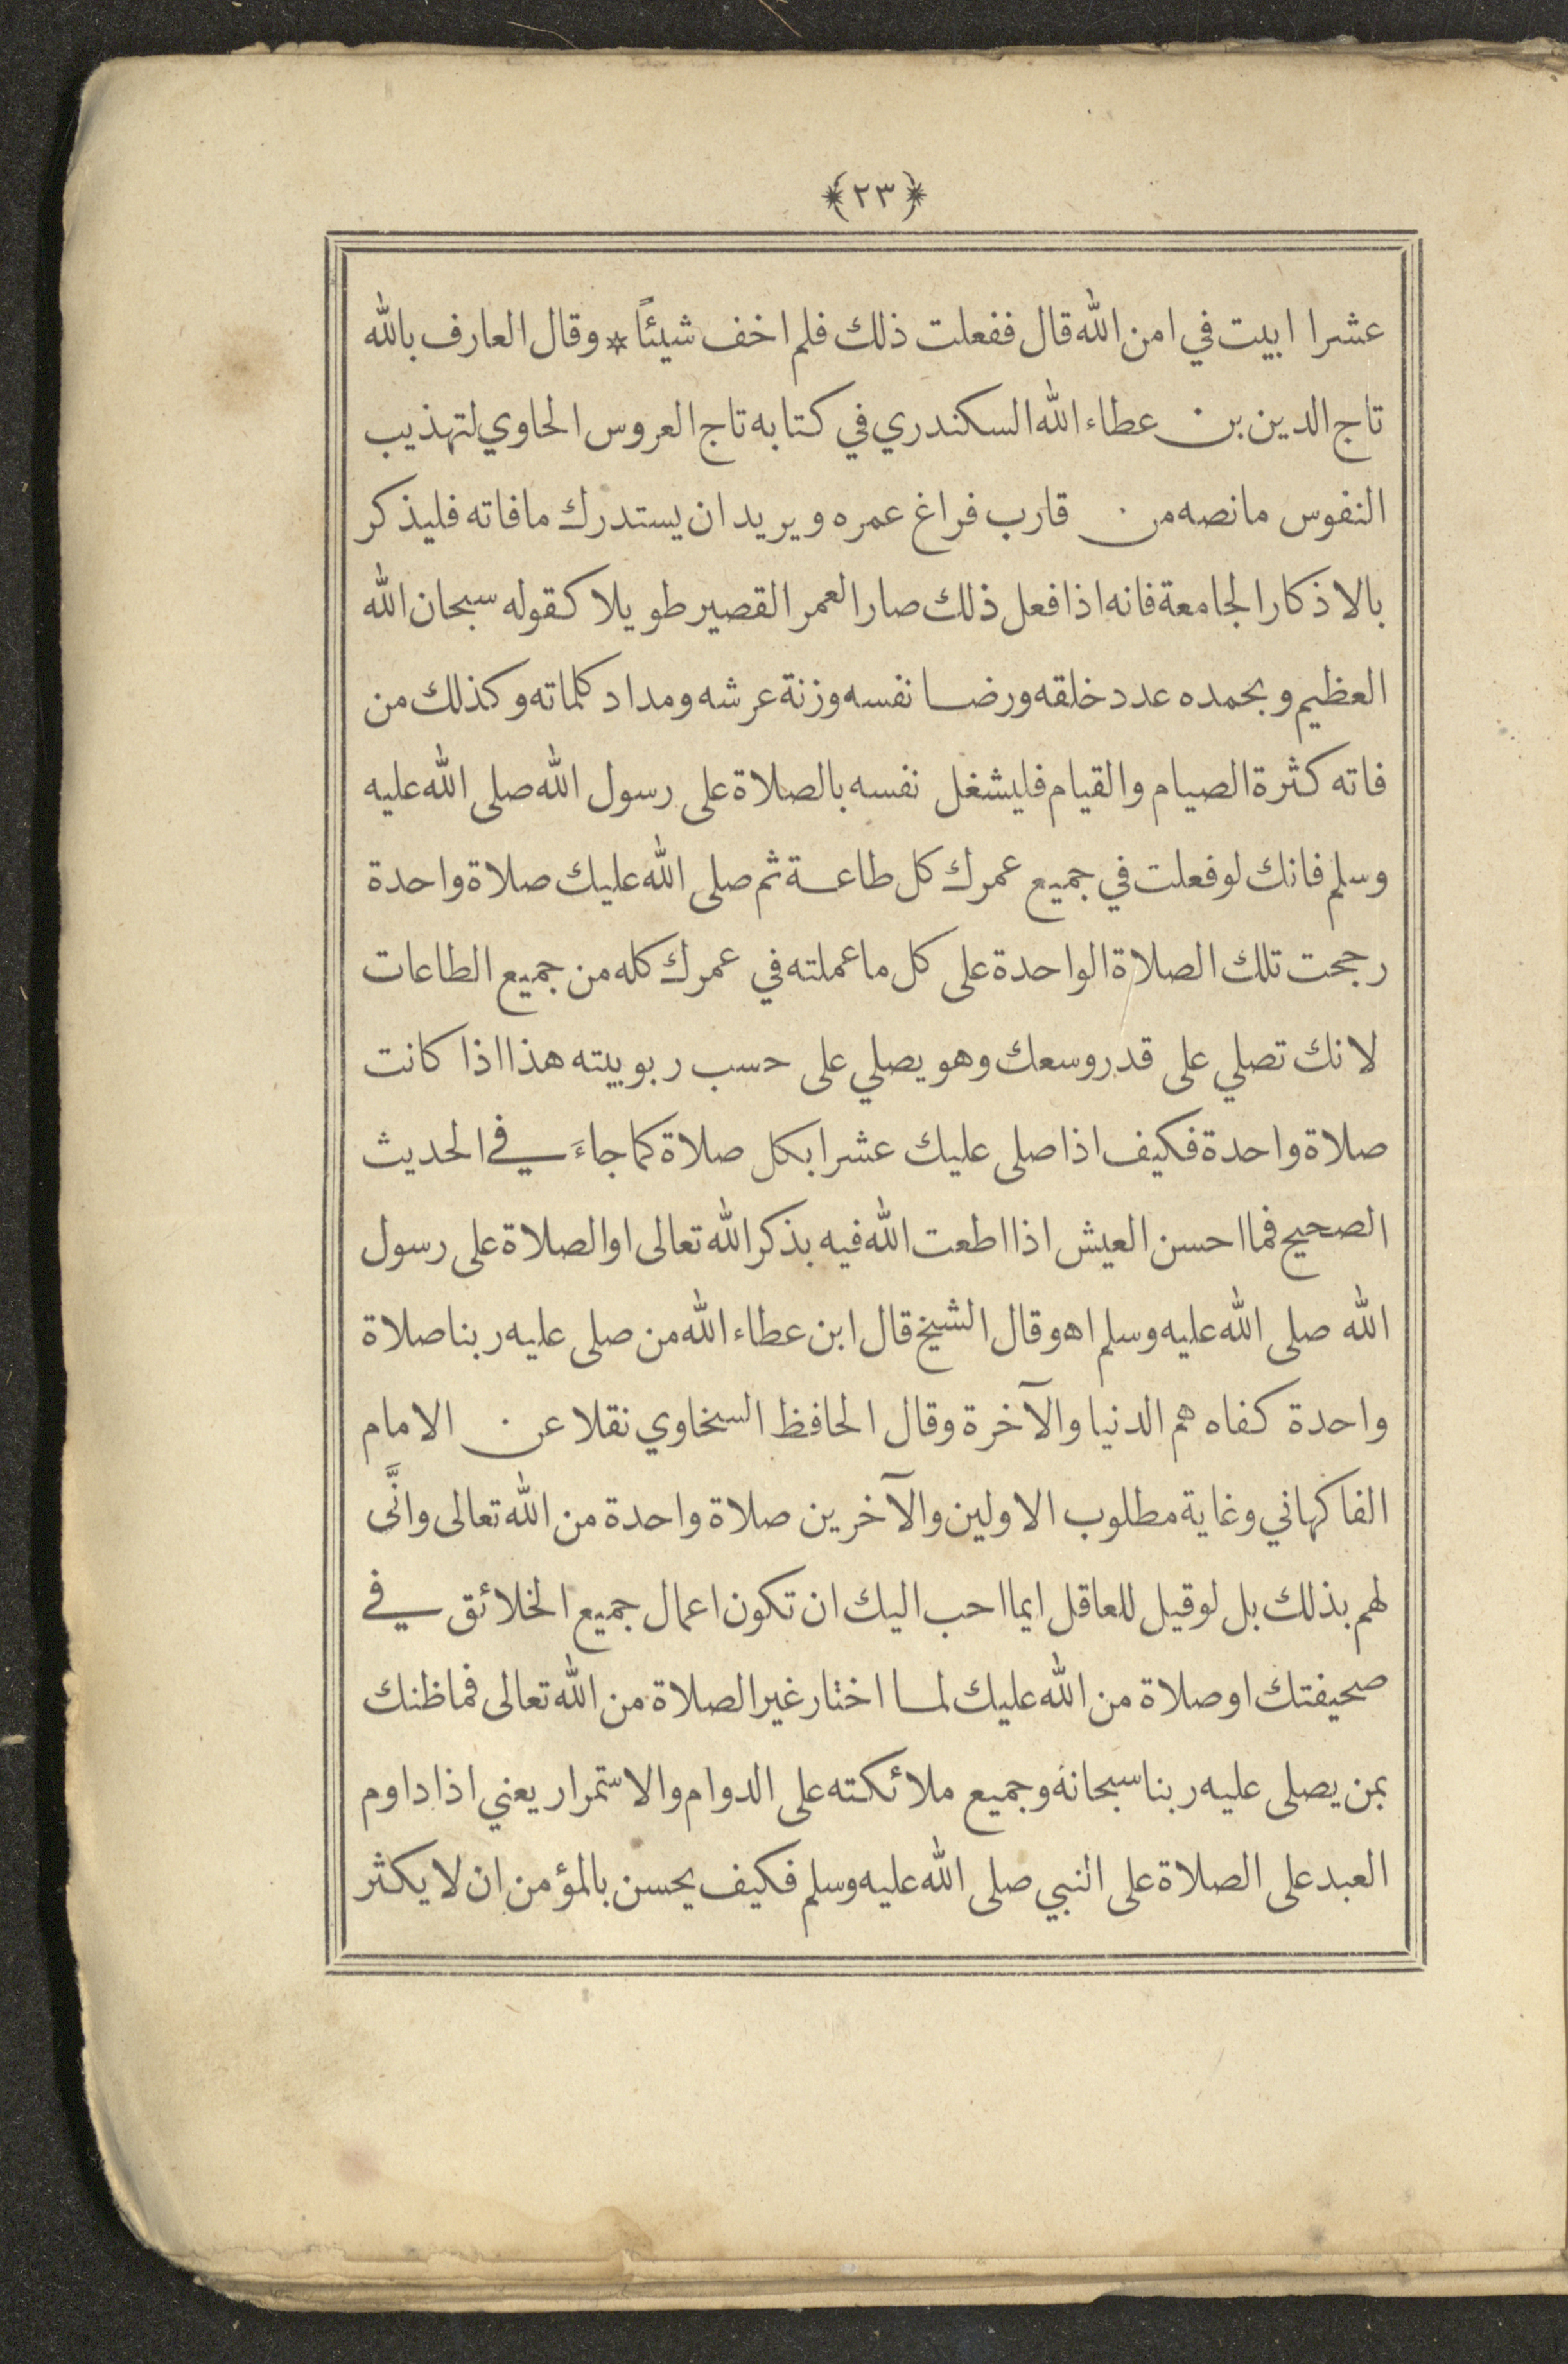 ﴿٢٣﴾
عشرا ابيت في امن الله قال ففعلت ذلك فلم اخف شيئاً * وقال العارف بالله
تاج الدين بن عطاء الله السكندري في كتابه تاج العروس الحاوي لتهذيب
النفوس مانصه من قارب فراغ عمره ويريد ان يستدرك مافاته فليذكر
بالاذكار الجامعة فانه اذا فعل ذلك صار العمر القصير طويلا كقوله سبحان الله
العظيم وبحمده عدد خلقه ورضا نفسه وزنة عرشه ومداد كلماته وكذلك من
فاته كثرة الصيام والقيام فليشغل نفسه بالصلاة على رسول الله صلى الله عليه
وسلم فانك لو فعلت في جميع عمرك كل طاعة ثم صلى الله عليك صلاة واحدة
رجحت تلك الصلاة الواحدة على كل ما عملته في عمرك كله من جميع الطاعات
لانك تصلي على قدر وسعك وهو يصلي على حسب ربوبيته هذا اذا كانت
صلاة واحدة فكيف اذا صلى عليك عشرا بكل صلاة كما جاءَ في الحديث
الصحيح فما احسن العيش اذا اطعت الله فيه بذكر الله تعالى او الصلاة على رسول
الله صلى الله عليه وسلم اه وقال الشيخ قال ابن عطاء الله من صلى عليه ربنا صلاة
واحدة كفاه هم الدنيا والآخرة وقال الحافظ السخاوي نقلا عن الامام
الفاكهاني وغاية مطلوب الاولين والآخرين صلاة واحدة من الله تعالى وانَّى
لهم بذلك بل لو قيل للعاقل ايما احب اليك ان تكون اعمال جميع الخلائق في
صحيفتك او صلاة من الله عليك لما اختار غير الصلاة من الله تعالى فما ظنك
بمن يصلى عليه ربنا سبحانه وجميع ملائكته على الدوام والاستمرار يعني اذا داوم
العبد على الصلاة على النبي صلى الله عليه وسلم فكيف يحسن بالمؤمن ان لا يكثر